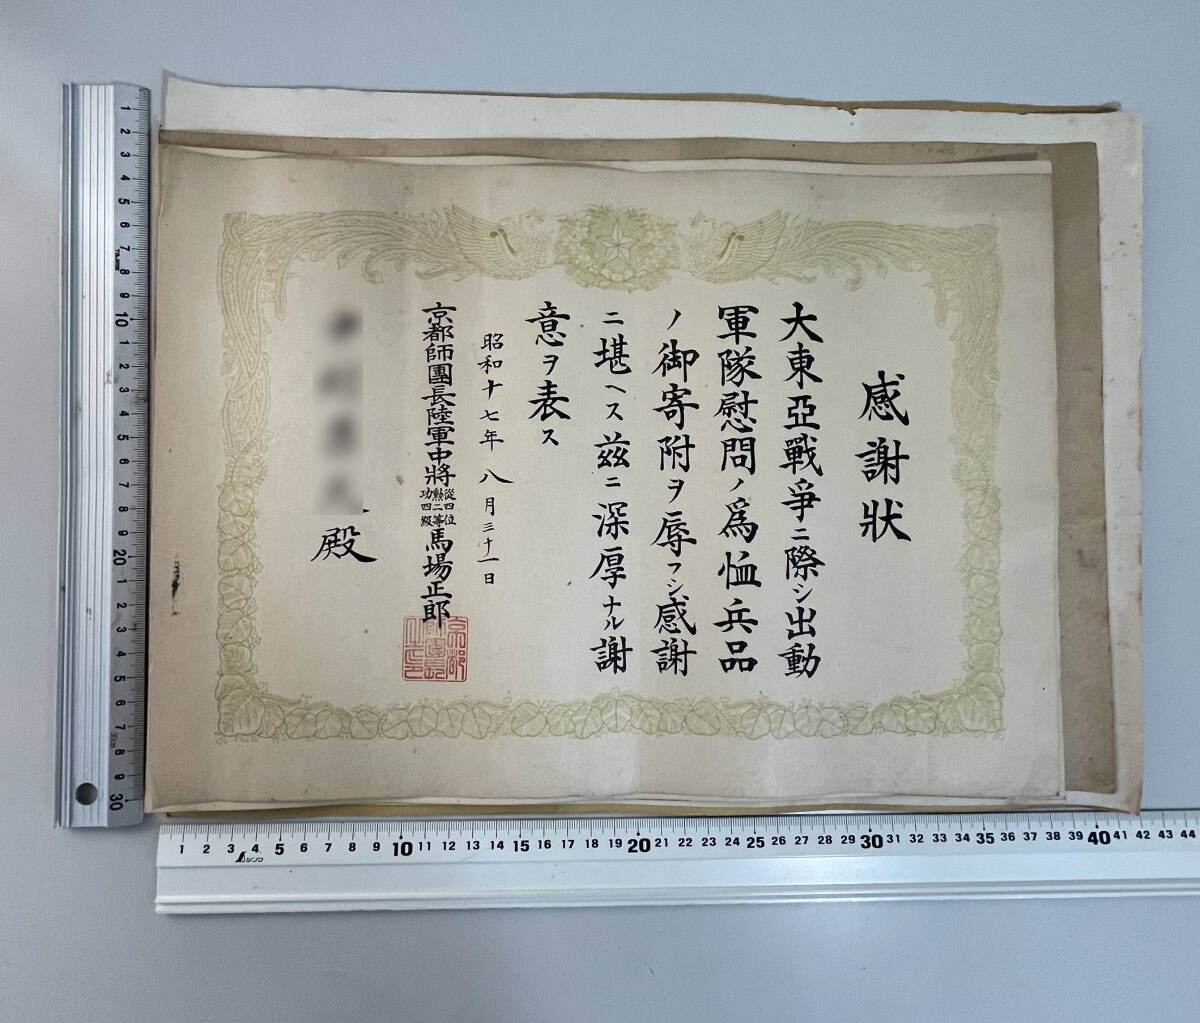 感謝狀
大東亞戰爭ニ際シ出動
軍隊慰問ノ爲恤兵品
ノ御寄附ヲ辱フシ感謝
ニ堪ヘス茲ニ深厚ナル謝
意ヲ表ス
昭和十七年八月三十一日
京都師團長陸軍中將從四位勲二等功四級馬場正郎
殿
京都師團長之印
1 2 3 4 5 6 7 8 9 10 1 2 3 4 5 6 7 8 9 20 1 2 3 4 5 6 7 8 9 30
1 2 3 4 5 6 7 8 9 10 11 12 13 14 15 16 17 18 19 20 21 22 23 24 25 26 27 28 29 30 31 32 33 34 35 36 37 38 39 40 41 42 43 44
シンワ